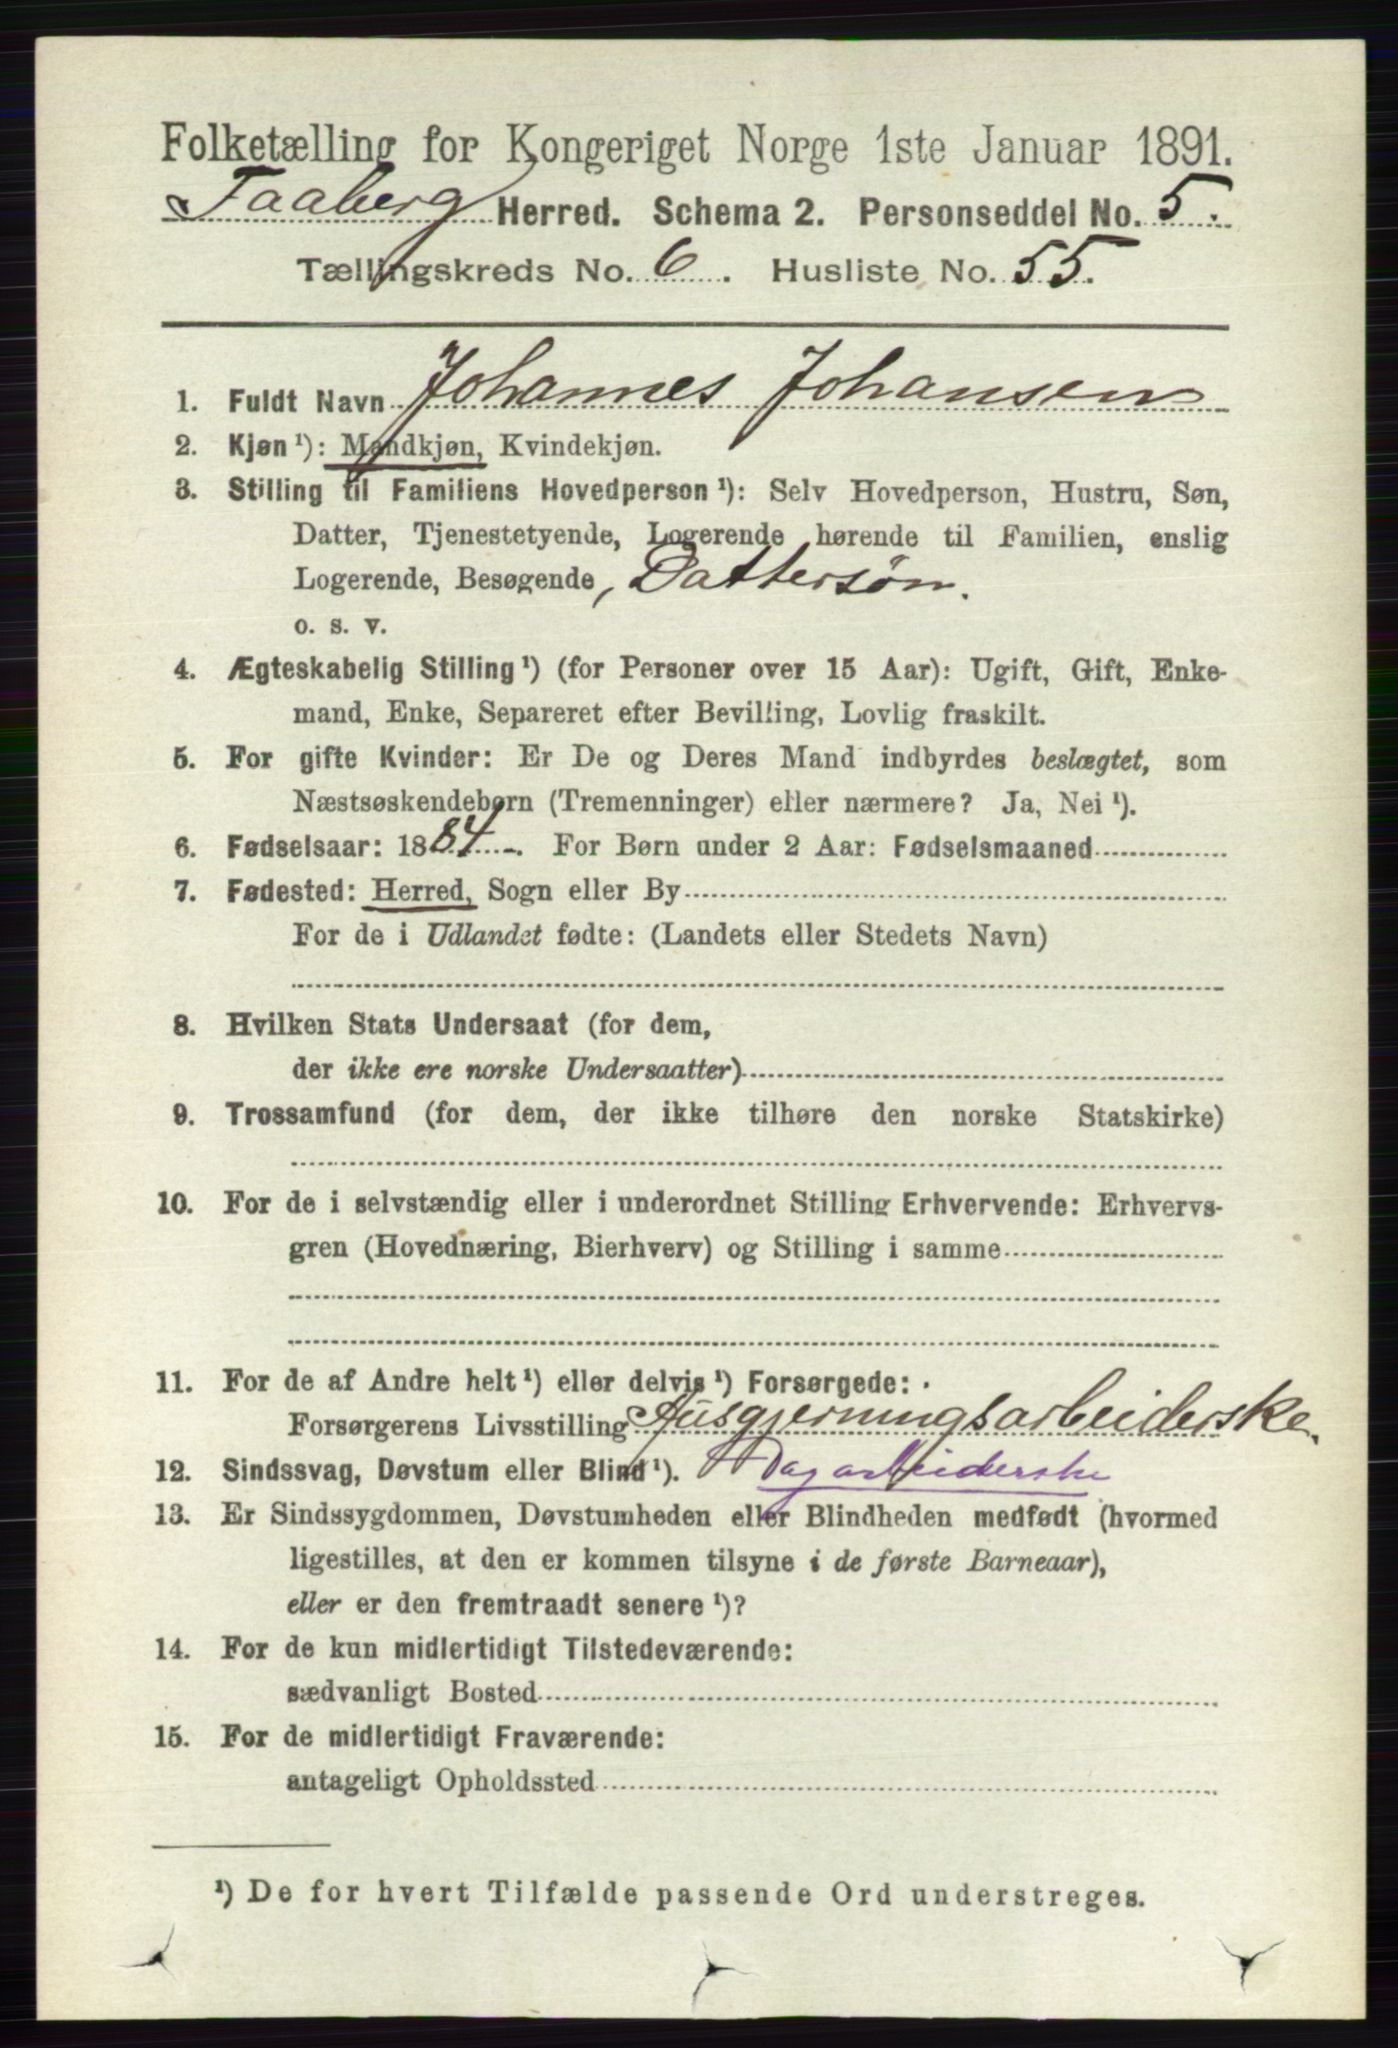 Folketælling for Kongeriget Norge 1ste Januar 1891.
Faaberg Herred. Schema 2. Personseddel No. 5.
Tællingskreds No. 6. Husliste No. 55.
1. Fuldt Navn Johannes Johansen
2. Kjøn ¹): Mandkjøn, Kvindekjøn.
3. Stilling til Familiens Hovedperson ¹): Selv Hovedperson, Hustru, Søn,
Datter, Tjenestetyende, Logerende hørende til Familien, enslig
Logerende, Besøgende, Dattersøn.
o. s. v.
4. Ægteskabelig Stilling ¹) (for Personer over 15 Aar): Ugift, Gift, Enke-
mand, Enke, Separeret efter Bevilling, Lovlig fraskilt.
5. For gifte Kvinder: Er De og Deres Mand indbyrdes beslægtet, som
Næstsøskendebørn (Tremenninger) eller nærmere? Ja, Nei ¹).
6. Fødselsaar: 1884. For Børn under 2 Aar: Fødselsmaaned
7. Fødested: Herred, Sogn eller By
For de i Udlandet fødte: (Landets eller Stedets Navn)
8. Hvilken Stats Undersaat (for dem,
der ikke ere norske Undersaatter)
9. Trossamfund (for dem, der ikke tilhøre den norske Statskirke)
10. For de i selvstændig eller i underordnet Stilling Erhvervende: Erhvervs-
gren (Hovednæring, Bierhverv) og Stilling i samme
11. For de af Andre helt ¹) eller delvis ¹) Forsørgede:
Forsørgerens Livsstilling Husgjerningsarbeiderske.
12. Sindssvag, Døvstum eller Blind ¹). Dagarbeiderske
13. Er Sindssygdommen, Døvstumheden eller Blindheden medfødt (hvormed
ligestilles, at den er kommen tilsyne i de første Barneaar),
eller er den fremtraadt senere ¹)?
14. For de kun midlertidigt Tilstedeværende:
sædvanligt Bosted
15. For de midlertidigt Fraværende:
antageligt Opholdssted
¹) De for hvert Tilfælde passende Ord understreges.